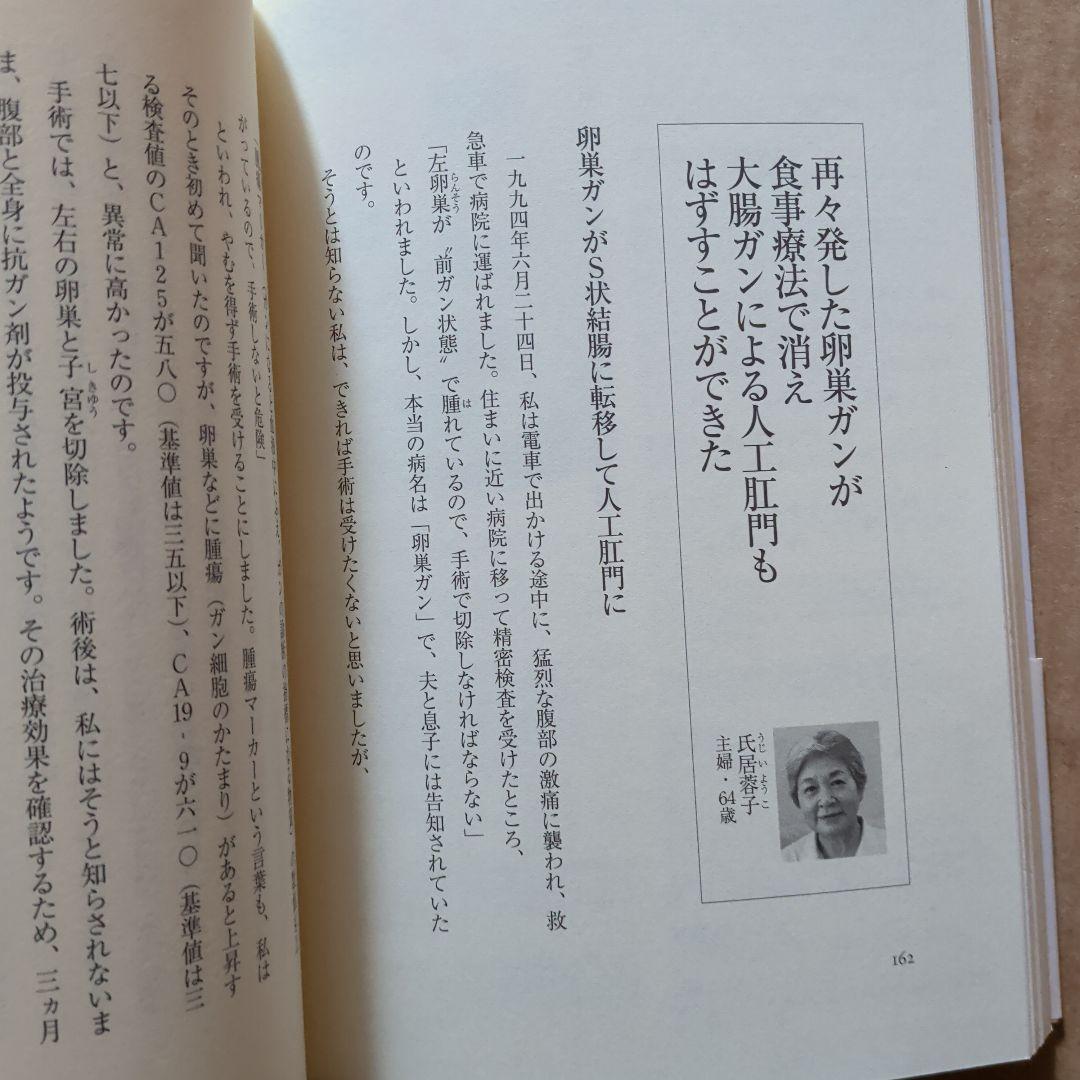 再々発した卵巣ガンが
食事療法で消え
大腸ガンによる人工肛門も
はずすことができた
うじいようこ
氏居蓉子
主婦・64歳
卵巣ガンがS状結腸に転移して人工肛門に
一九九四年六月二十四日、私は電車で出かける途中に、猛烈な腹部の激痛に襲われ、救
急車で病院に運ばれました。住まいに近い病院に移って精密検査を受けたところ、
らんそう
「左卵巣が〝前ガン状態〟で腫れているので、手術で切除しなければならない」
は
といわれました。しかし、本当の病名は「卵巣ガン」で、夫と息子には告知されていた
のです。
そうとは知らない私は、できれば手術は受けたくないと思いましたが、
162
がっているので、手術しないと危険」
といわれ、やむを得ず手術を受けることにしました。腫瘍マーカーという言葉も、私は
そのとき初めて聞いたのですが、卵巣などに腫瘍（ガン細胞のかたまり）があると上昇す
る検査値のCA125が五八〇（基準値は三五以下）、CA19-9が六一〇（基準値は三
七以下）と、異常に高かったのです。
しきゅう
手術では、左右の卵巣と子宮を切除しました。術後は、私にはそうと知らされないま
ま、腹部と全身に抗ガン剤が投与されたようです。その治療効果を確認するため、三ヵ月